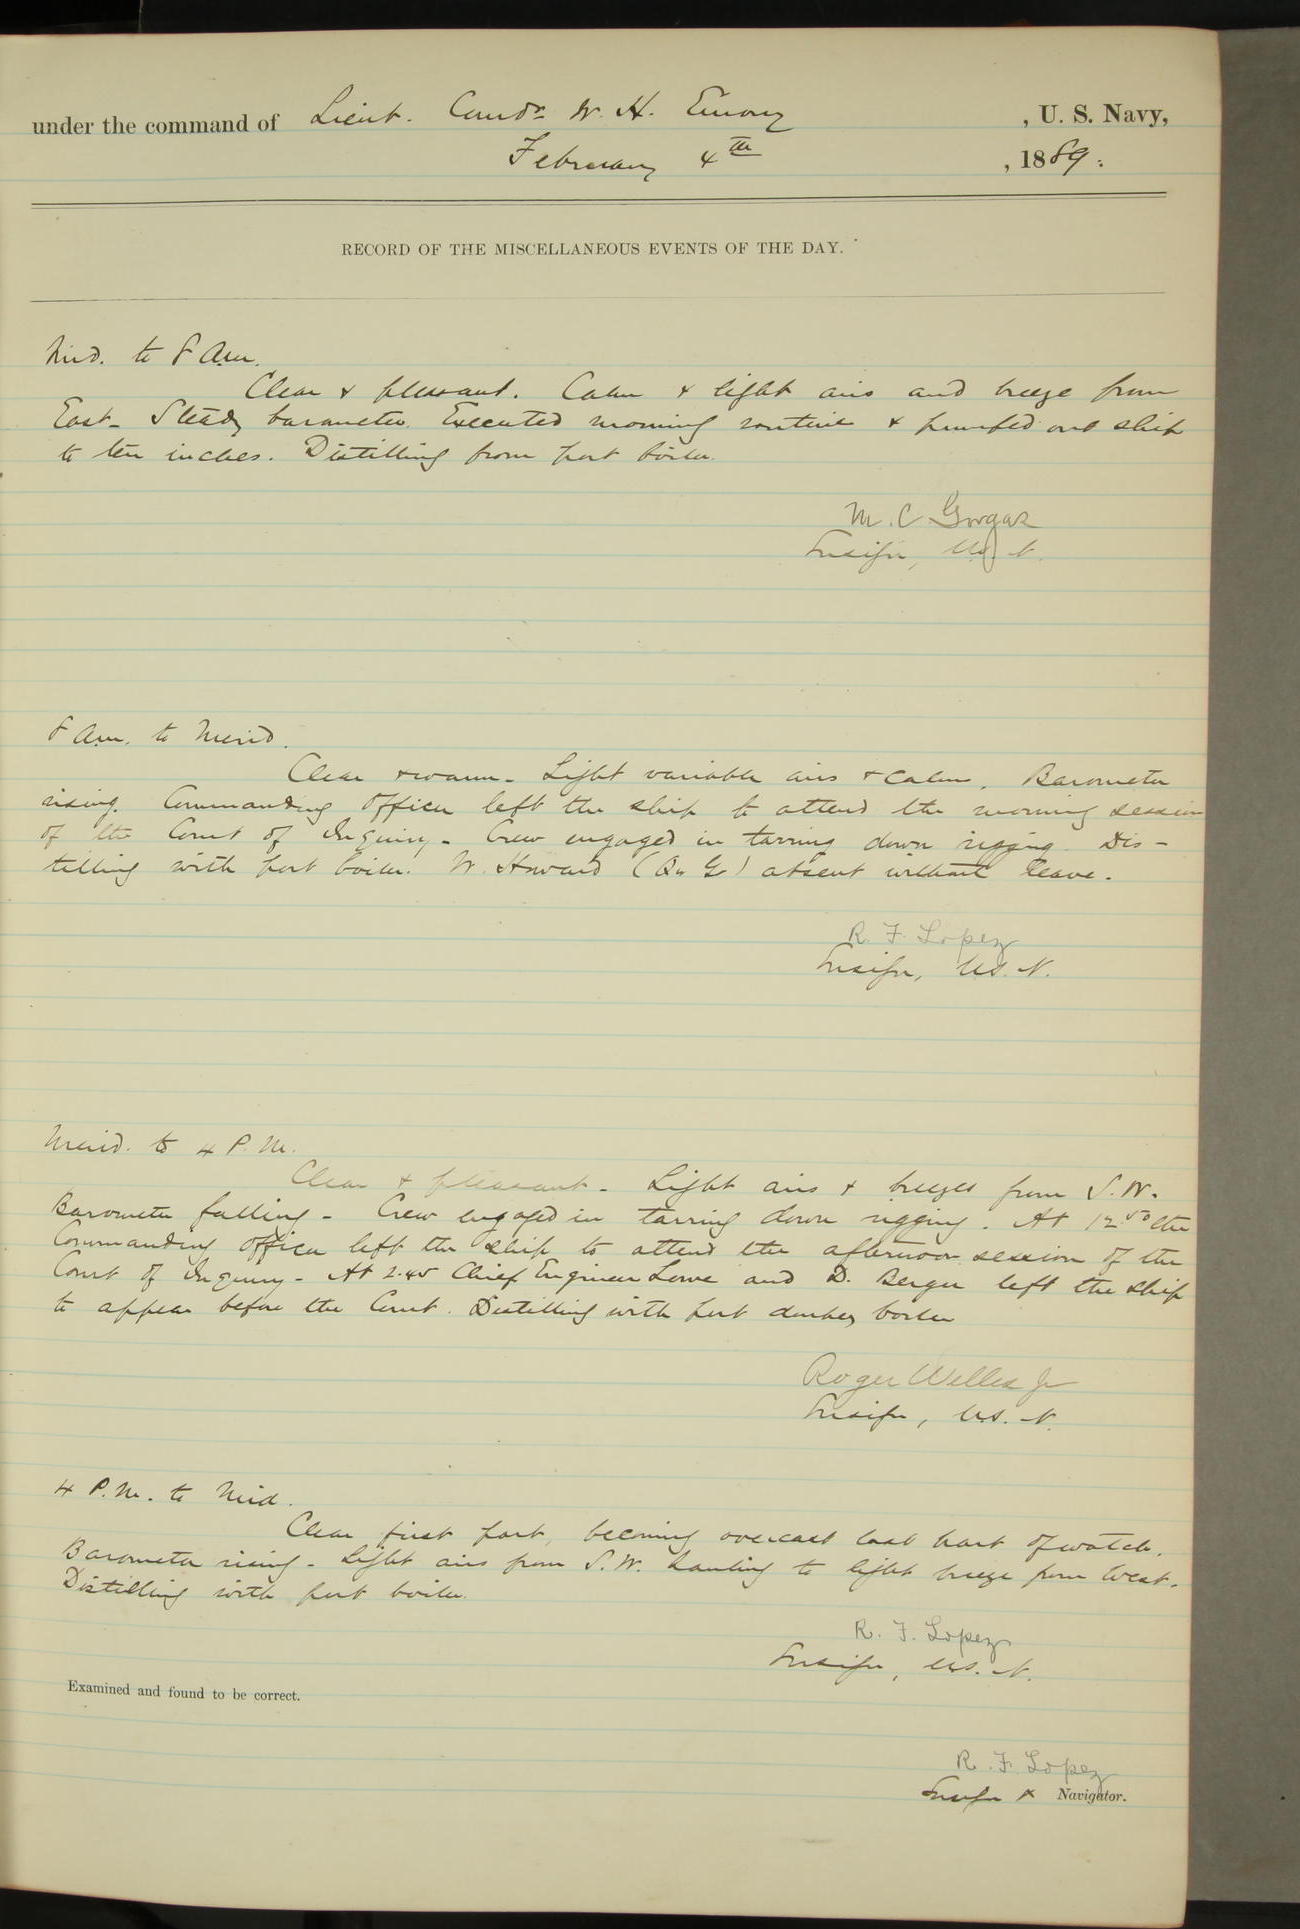 under the command of Lieut. Comdr W. H. Emory, U. S. Navy,
February 4th, 1889.
RECORD OF THE MISCELLANEOUS EVENTS OF THE DAY.
Mid. to 8 Am.
Clear & pleasant. Calm & light airs and breeze from
East. Steady barometer. Executed morning routine & pumped out ship
to ten inches. Distilling from port boiler.
M. C. Gorgas
Ensign, U.S.N.
8 Am. to Merid.
Clear & warm. Light variable airs & calm. Barometer
rising. Commanding Officer left the ship to attend the morning session
of the Court of Inquiry. Crew engaged in tarring down rigging. Dis-
tilling with port boiler. W. Howard absent without leave.
R. F. Lopez
Ensign, U.S.N.
Merid. to 4 P.M.
Clear & pleasant. Light airs & breezes from S.W.
Barometer falling. Crew engaged in tarring down rigging. At 12.50 the
Commanding Officer left the ship to attend the afternoon session of the
Court of Inquiry. At 2.45 Chief Engineer Lowe and D. Berger left the ship
to appear before the Court. Distilling with port donkey boiler
Roger Welles Jr
Ensign, U.S.N.
4 P.M. to Mid.
Clear first part, becoming overcast last part of watch.
Barometer rising. Light airs from S.W. hauling to light breeze from West.
Distilling with port boiler.
R. F. Lopez
Ensign, U.S.N.
Examined and found to be correct.
R. F. Lopez
Ensign & Navigator.